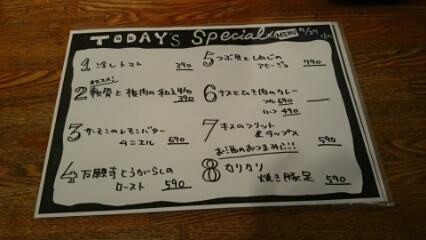 TODAY's Special MENU 9/29
1 冷しトマト 390
オススメ!
2 軟骨と梅肉の和え物
390
3 サーモンのレモンバター
ムニエル 690
4 万願寺とうがらしの
ロースト 590
5 つぶ貝としめじの
アヒージョ 790
6 ナスとひき肉のカレー
フル 690
ハーフ 490
7 キスのフリット
&チップス
590
お酒のおつまみに!!
8 カリカリ
焼き豚足 590